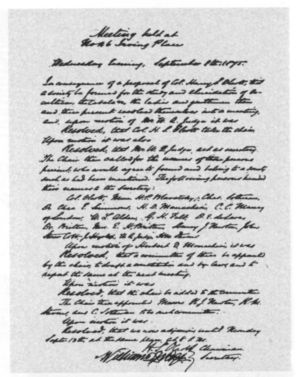 Meeting held at
No 46 Irving Place
Wednesday Evening, September 8th, 1875.
In consequence of a proposal of Col. Henry S. Olcott, that
a Society be formed for the study and elucidation of Oc-
cultism the ladies and gentlemen then
and there present resolved themselves into a meeting,
and, upon motion of Mr W. Q. Judge it was
Resolved, that Col H. S. Olcott take the chair
Upon motion it was also
Resolved, that Mr W. Q. Judge act as secretary
The Chair then called for the names of those persons
present, who would agree to found and belong to a society
such as had been mentioned. The following persons handed
their names to the Secretary:
Col. Olcott, Mme. H. P. Blavatsky, Chas. Sotheran,
Dr. Chas. E. Simmons, H. D. Monachesi, C. C. Massey
of London, W. L. Alden, G. H. Felt, D. E. de Lara,
Dr. Britten, Mrs. E. H. Britten, Henry J. Newton, John
Storer Cobb, J. Hyslop, W. Q. Judge, H. M. Stevens
Upon motion of Herbert D. Monachesi it was
Resolved, that a committee of three be appointed
by the chair, to draft a constitution and by-laws and to
report the same at the next meeting.
Upon motion it was
Resolved, that the chair be added to the Committee
The Chair then appointed Messrs H. J. Newton, H. M.
Stevens, and C. Sotheran to be such committee.
Upon motion it was
Resolved, that we now adjourn until Monday
Sept. 13th at the same place, at 8 P.M.
H. S. Olcott, Chairman
William Q. Judge, Secretary.